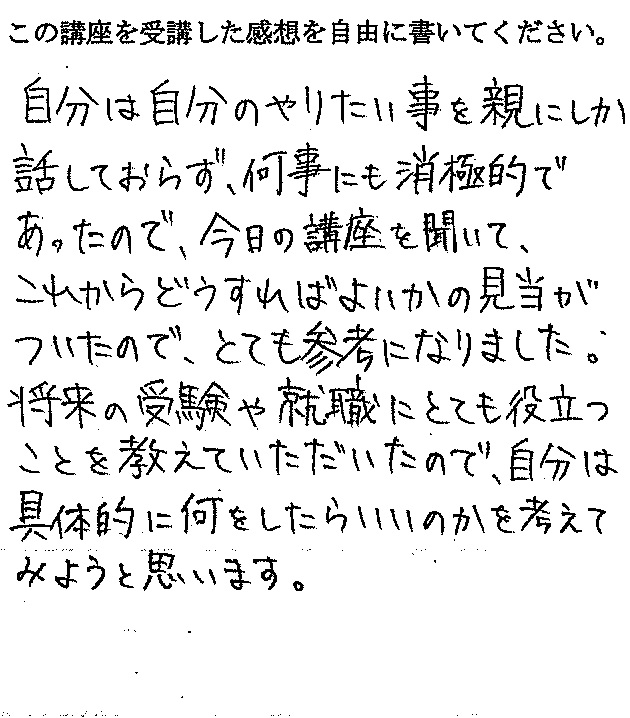 この講座を受講した感想を自由に書いてください。
自分は自分のやりたい事を親にしか
話しておらず、何事にも消極的で
あったので、今日の講座を聞いて、
これからどうすればよいかの見当が
ついたので、とても参考になりました。
将来の受験や就職にとても役立つ
ことを教えていただいたので、自分は
具体的に何をしたらいいのかを考えて
みようと思います。